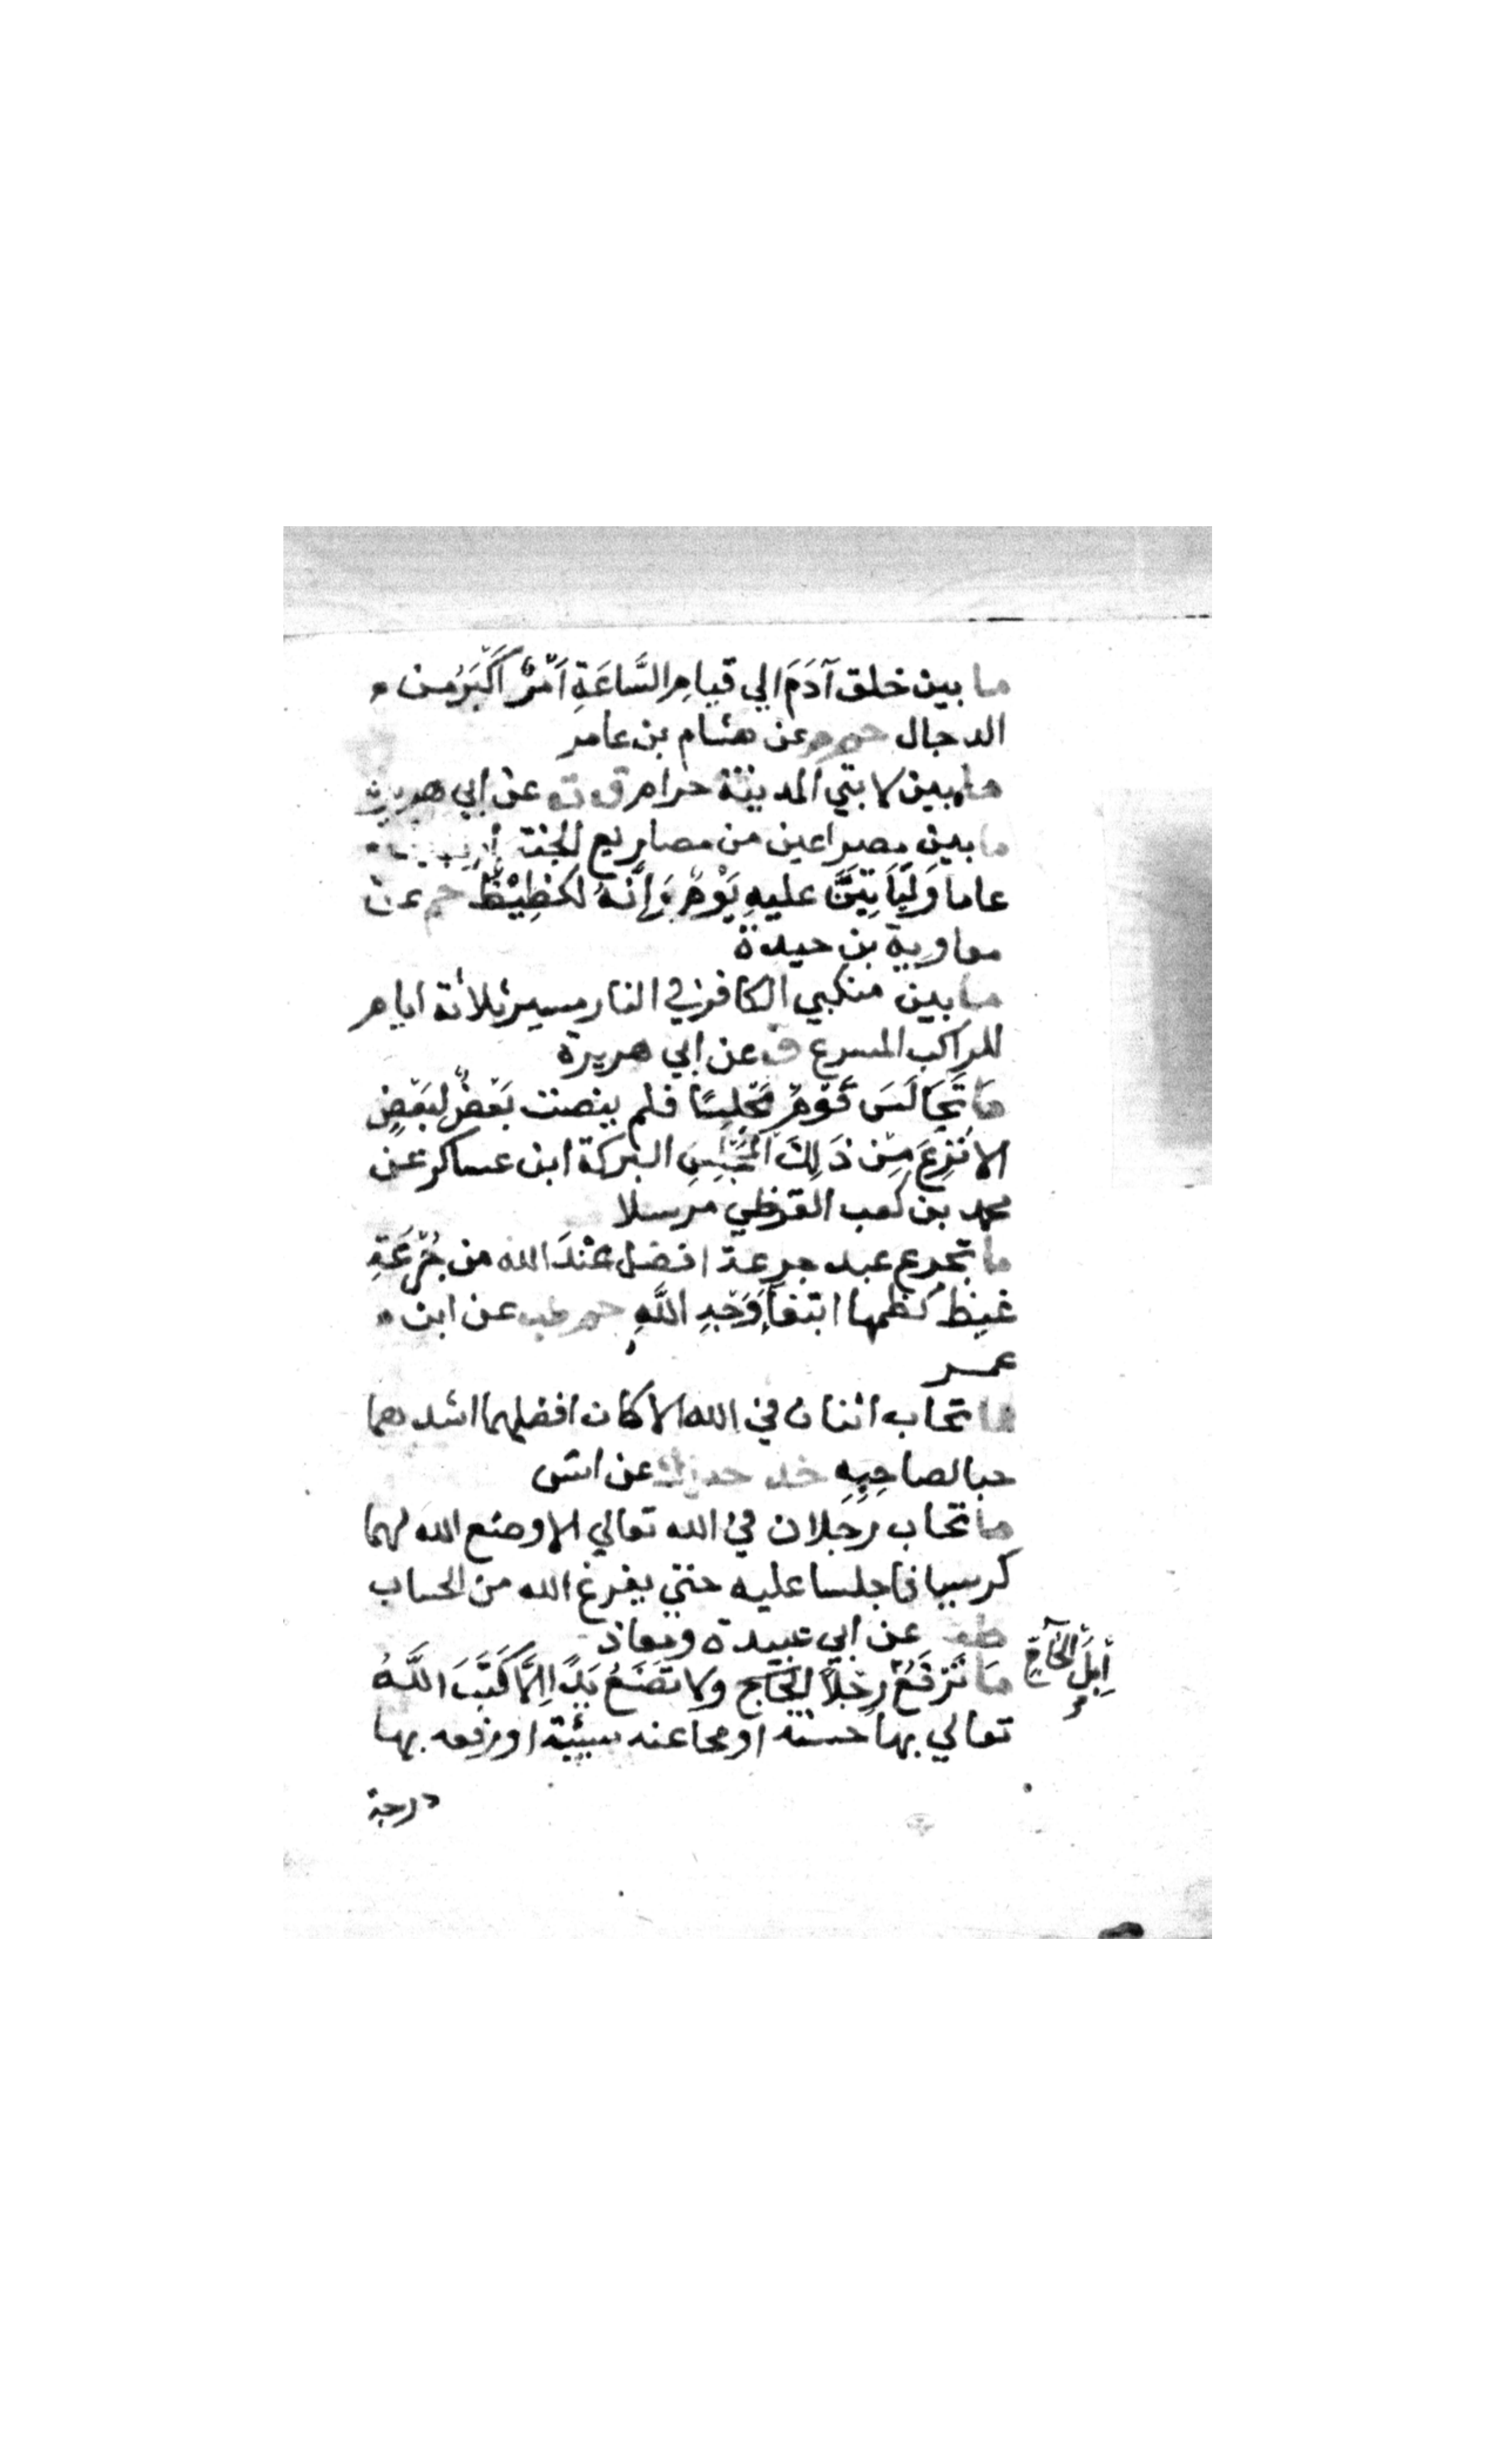 ما بين خلق آدَمَ الي قيامِ السَّاعَةِ اَمْرٌ اَكْبَرُ مِن
الدجال حم م عن هشام بن عامر
ما بين لابتي المدينة حرام ق ت عن ابي هريرة
ما بين مصراعين من مصاريع الجنة اربعين
عاما وَلَيَأتِيَنَّ عليهِ يَوْمٌ وَاِنَّهُ لكَظِيْظٌ حم عن
معاوية بن حيدة
ما بين منكبي الكافر في النار مسير ثلاثة ايام
للراكب المسرع ق عن ابي هريرة
مَا تَجَالَسَ قَوْمٌ مَجْلِسًا فلم ينصت بَعْضٌ لِبَعْضٍ
الا نُزِعَ مِنْ ذَلِكَ المَجْلِسِ البركة ابن عساكر عن
محمد بن كعب القرظي مرسلا
ما تجرع عبد جرعة افضل عنْدَ الله من جُرْعَةِ
غيظ كظمها ابتغاَءَ وَجْهِ اللَّهِ حم طب عن ابن
عمر
ما تحاب اثنان في الله الا كان افضلهما اشدهما
حبا لصاحِبِهِ خد حب ك عن انس
ما تحاب رَجُلان في الله تعالي الا وضع الله لهما
كرسيا فاجلسا عليه حتي يفرغ الله من الحساب
طب عن ابي عبيدة ومعاذ
مَا تَرْفَعُ رِجْلًا الحَاج ولا تَضَعُ يَدًا اِلَّا كَتَبَ اللَّهُ
اِبِلُ الحَآجِّ
تعالي بها حسنة او محا عنه سيئة او رفعه بها
درجة